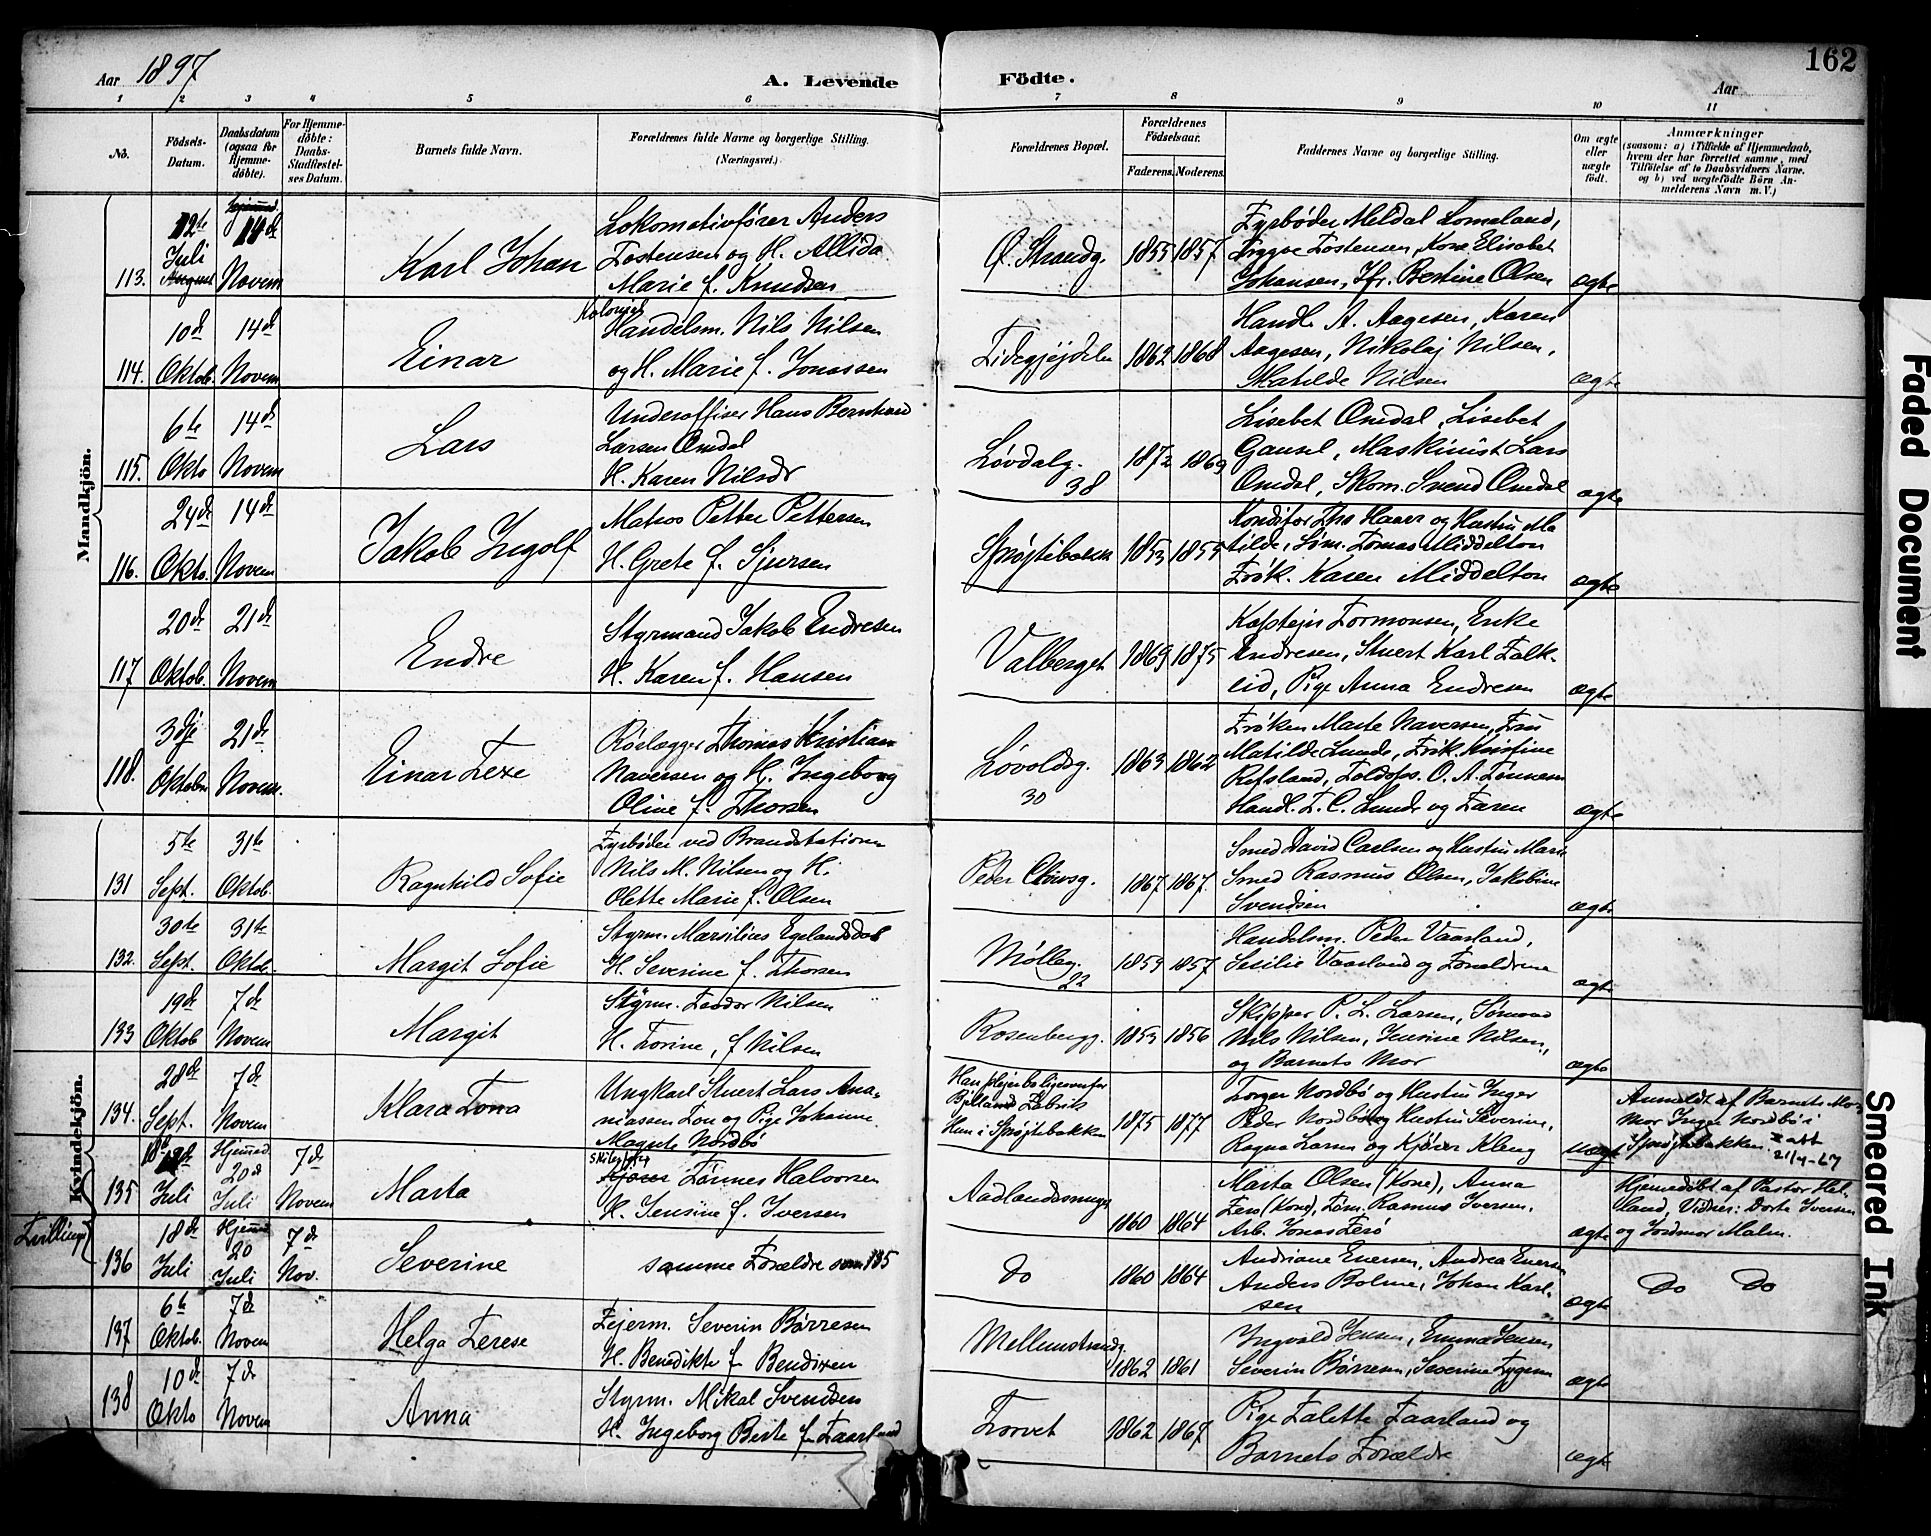 162
Aar 1897 A. Levende Födte. Aar
1 2 3 4 5 6 7 8 9 10 11
No.
Födsels-Datum.
Daabsdatum (ogsaa for Hjemme-døbte).
For Hjemme-døbte: Daabs-Stadfæstel-ses Datum.
Barnets fulde Navn.
Forældrenes fulde Navne og borgerlige Stilling. (Næringsvei.)
Forældrenes Bopæl.
Forældrenes Födselsaar.
Faderens. Moderens.
Faddernes Navne og borgerlige Stilling.
Om ægte eller uægte født.
Anmærkninger
(saasom: a) i Tilfælde af Hjemmedaab,
hvem der har forrettet samme, med
Tilføielse af to Daabsvidners Navne,
og b) ved uægtefødte Börn An-
melderens Navn m. V.)
Mandkjön.
113. 12te Juli 14de Novem
Karl Johan
Lokomotivfører Anders
Tostensen og H. Allida
Marie f. Knudsen
Ø. Strandg. 1855 1857
Fyrbøder Meldal Lomeland,
Trygve Tostensen, Kone Elisabet
Johansen, Jfr. Bertine Olsen
ægte
114. 10de Oktob. 14de Novem
Einar
Handelsm. Nils Nilsen
og H. Marie f. Jonassen
1862 1868
Handl. A. Aagesen, Karen
Aagesen, Nikolaj Nilsen,
Matilde Nilsen
ægte
115. 6te Okto 14de Novem
Lars
Underoffiser Hans Bernhard
Larsen Omdal
H. Karen Nilsdr
Løvdalg. 38 1872 1869
Lisebet Omdal, Lisebet
Gausel, Maskinist Lars
Omdal, Skom. Svend Omdal
ægte
116. 24de Okto. 14de Novem
Jakob Ingolf
Matros Petter Pettersen
H. Grete f. Sjursen
Sprøjtebakken 1853 1855
Konditor Ths Haaer og Hustru Ma
tilde, Tøm. Tomas Middelton
Frøk. Karen Middelton
ægte
117 20de Oktob. 21de Novem
Endre
Styrmand Jakob Endresen
H. Karen f. Hansen
Valberget 1869 1875
Kaptejn Tormonsen, Enke
Endresen, Stuert Karl Falk-
eid, Pige Anna Endresen
ægte
118. 3dje Oktober 21de Novem.
Einar Texe
Thomas Kristian
Naversen og H. Ingeborg
Olive f. Thorsen
Løvoldsg. 30 1863 1862
Frøken Marte Naversen, Fru
Matilde Lunde, Frøk. Kristine
Refsland, Toldops. O. A. Tønnesen
Handl. T. C. Lunde og Faren
ægte
Kvindekjön.
131 5te Sept. 31te Oktob.
Ragnhild Sofie
Fyrbøder ved Brandstationen
Nils M. Nilsen og H.
Olette Marie f. Olsen
Peder Clowsg. 1867 1867.
Smed David Carlsen og Hustru Marie
Smed Rasmus Olsen, Jakobine
Svendsen
ægte
132. 30te Sept. 31te Oktob.
Margit Sofie
Styrm. Marsilius Egelandsdal
H. Severine f. Thorsen
Mølleg. 22 1853 1857
Handelsm. Peder Vaarland,
Sesilie Vaarland og Forældrene
ægte
133 19de Oktob 7de Novem
Margit
Styrm. Teodor Nilsen
H. Torine, f Nilsen
Rosenbergg. 1853 1856
Skipper P. L. Larsen, Sømand
Nils Nilsen, Jensine Nilsen,
og Barnets Mor
ægte
134. 28de Sept. 7de Novem
Klara Tona
Ungkarl Stuert Lars Ana-
niassen Tou og Pige Johanne
Magnete Nordbø
Bjelland Fabrik
Hun i Sprøjtebakken
1875 1877
Torger Nordbø og Hustru Inger
Peder Nordbø og Hustru Severine,
Ragna Larsen og Kjører Kleng
uægte
Anmeldt af Barnets Mor-
mor Inger Nordbø i
Sprøjtebakken
att 21/4-67
Tvillinger
135 18de Juli Hjemmed 20de Juli 7de Novem
Marta
Tønnes Halvorsen
H. Jensine f. Iversen
Aadlandssmuget 1860 1864
Marta Olsen (Kone), Anna
Ferø (Kone), Tøm. Rasmus Iversen,
Arb. Jonas Ferø
ægte
Hjemmedøbt af Pastor Hel-
land, Vidner: Dorte Iversen
og Jordmor Malm.
136 18de Juli Hjemmed 20 Juli 7de Nov.
Severine
samme Forældre som 135
Do 1860 1864
Andriane Enersen, Andrea Enersen
Anders Bolme, Johan Karl-
sen
ægte
Do Do
137 6te Oktob. 7de Novem
Helga Terese
Fejerm. Severin Børresen
H. Benedikte f. Bendixen
Mellemstrandg. 1862 1861
Ingvald Jensen, Emma Jensen
Severin Børresen, Severine
ægte
138 10de Okto 7de Novem
Anna
Styrm. Mikal Svendsen
H. Ingeborg Berte f. Faarland
Torvet 1862 1867
Pige Talette Faarland og
Barnets Forældre
ægte
Faded Document
Smeared Ink